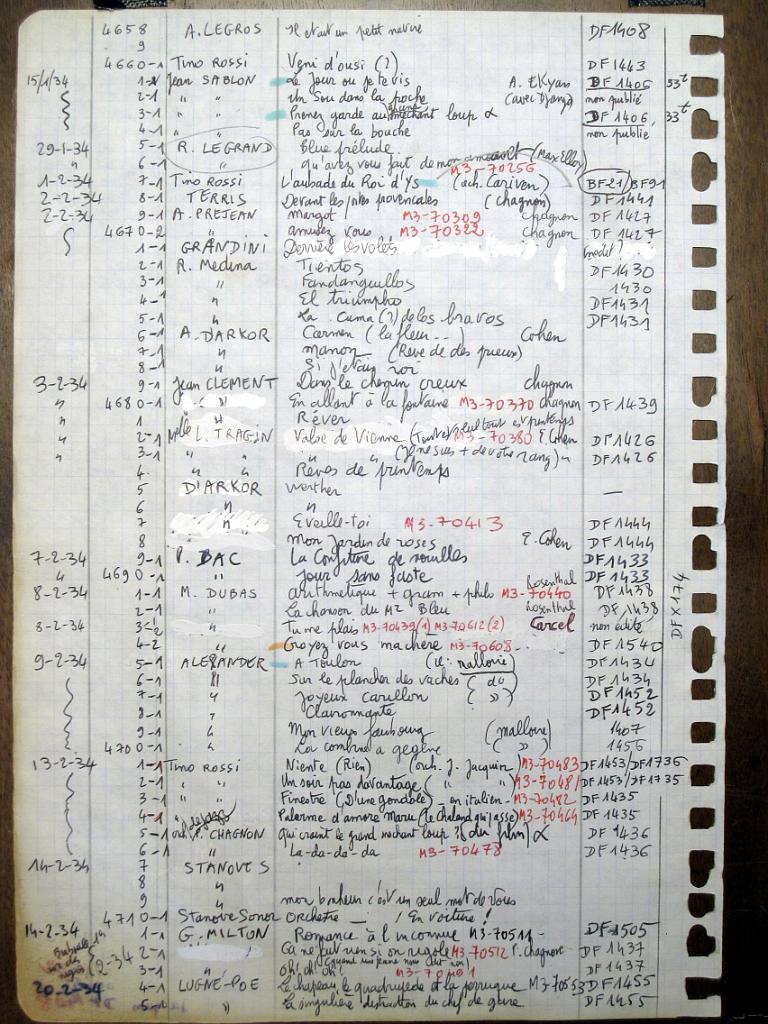 4658 A. LEGROS Il était un petit navire DF1408
9
4660-1 Tino Rossi Veni d'ousi (?) DF1443
15/1/34 1-1 Jean SABLON Le Jour ou je te vis A. Ekyan DF1406 33t
2-1 " " Un Sou dans la poche (avec Django) non publié
3-1 " " Prenez garde au méchant loup α DF1406, 33t
4-1 " " Pas sur la bouche non publié
29-1-34 5-1 R. LEGRAND Blue prélude
" 6-1 " qu'avez vous fait de mon amour (Max Ellor) M3-70256
1-2-34 7-1 Tino Rossi L'aubade du Roi d'Ys (orch. Cariven) BF21/BF91
2-2-34 8-1 TERRIS Devant les ptes provencales (chagnon) DF1441
2-2-34 9-1 A. PREJEAN margot M3-70309 chagnon DF1427
4670-2 amusez vous M3-70322 chagnon DF1427
1-1 GRANDINI Derrière les volets inédit?
2-1 R. Medina Tientos DF1430
3-1 " Fandanguillos 1430
4-1 " El triumpho DF1431
5-1 " La Cuma (?) de los bravos DF1431
6-1 A. D'ARKOR Carmen (la fleur ...) Cohen
7-1 " Manon (Rêve de des grieux)
8-1 " Si j'étais roi
3-2-34 9-1 Jean CLEMENT Dans le chemin creux chagnon
" 4680-1 ( " ) En allant à la fontaine M3-70370 chagnon DF1439
" 1 " Rêver
" 2-1 Melle L. TRAGIN Valse de Vienne (Tout est printemps M3-70380 E. Cohen DF1426
" 3-1 " " " (Je ne suis + de votre rang) " DF1426
4. " " Rêves de printemps
5 D'ARKOR werther —
6 " "
7 " Eveille-toi M3-70413 DF1444
8 Mon Jardin de roses E. Cohen DF1444
7-2-34 9-1 P. DAC La Confiture de nouilles DF1433
" 4690-1 " Jour sans faste DF1433
8-2-34 1-1 M. DUBAS arithmétique + gram + philo M3-70440 Rosenthal DF1438
2-1 " La chanson du M2 Bleu Rosenthal DF1438
8-2-34 3-2 Tu me plais M3-70439(1) M3-70612(2) Carcel non édité
4-2 " Croyez vous ma chère M3-70608 DF1540
9-2-34 5-1 ALEXANDER A Toulon (d: malloire) DF1434
6-1 " Sur le plancher des vaches (do) DF1434
7-1 " Joyeux carillon ( » ) DF1452
8-1 " Clairomante DF1452
9-1 " Mon vieux faubourg (malloire) 1407
4700-1 " La combine a gégène ( » ) 1456
13-2-34 1-1 Tino Rossi Niente (Rien) (orch. J. Jacquin) M3-70483 DF1453/DF1736
2-1 " " Un soir pas davantage ( " " ) M3-70481 DF1453/DF1735
3-1 " " Finestre (D'une gondole) - en italien - M3-70482 DF1435
4-1 " Palerme d'amore Maru (le Chaland qui passe) M3-70464 DF1435
5-1 orch. P. CHAGNON Qui craint le grand méchant loup? (du film) α DF1436
6-1 " La-da-dé-da M3-70478 DF1436
14-2-34 7 STANOVES
8 "
9 " mon bonheur c'est un seul mot de vous
4710-1 Stanove Sonor Orchestre — / En voiture!
14-2-34 1-1 G. MILTON Romance à l'inconnue M3-70511- DF1505
2-34 2-1 " Ca ne fait rien si on rigole M3-70512 P. chagnon DF1437
3-1 " Oh! oh! oh! DF1437
20-2-34 4-1 LUGNÉ-POE Le chapeau, le quadrupède et la perruque M3-70553 DF1455
5-1 " La singulière distraction du chef de gare DF1455
DFX174